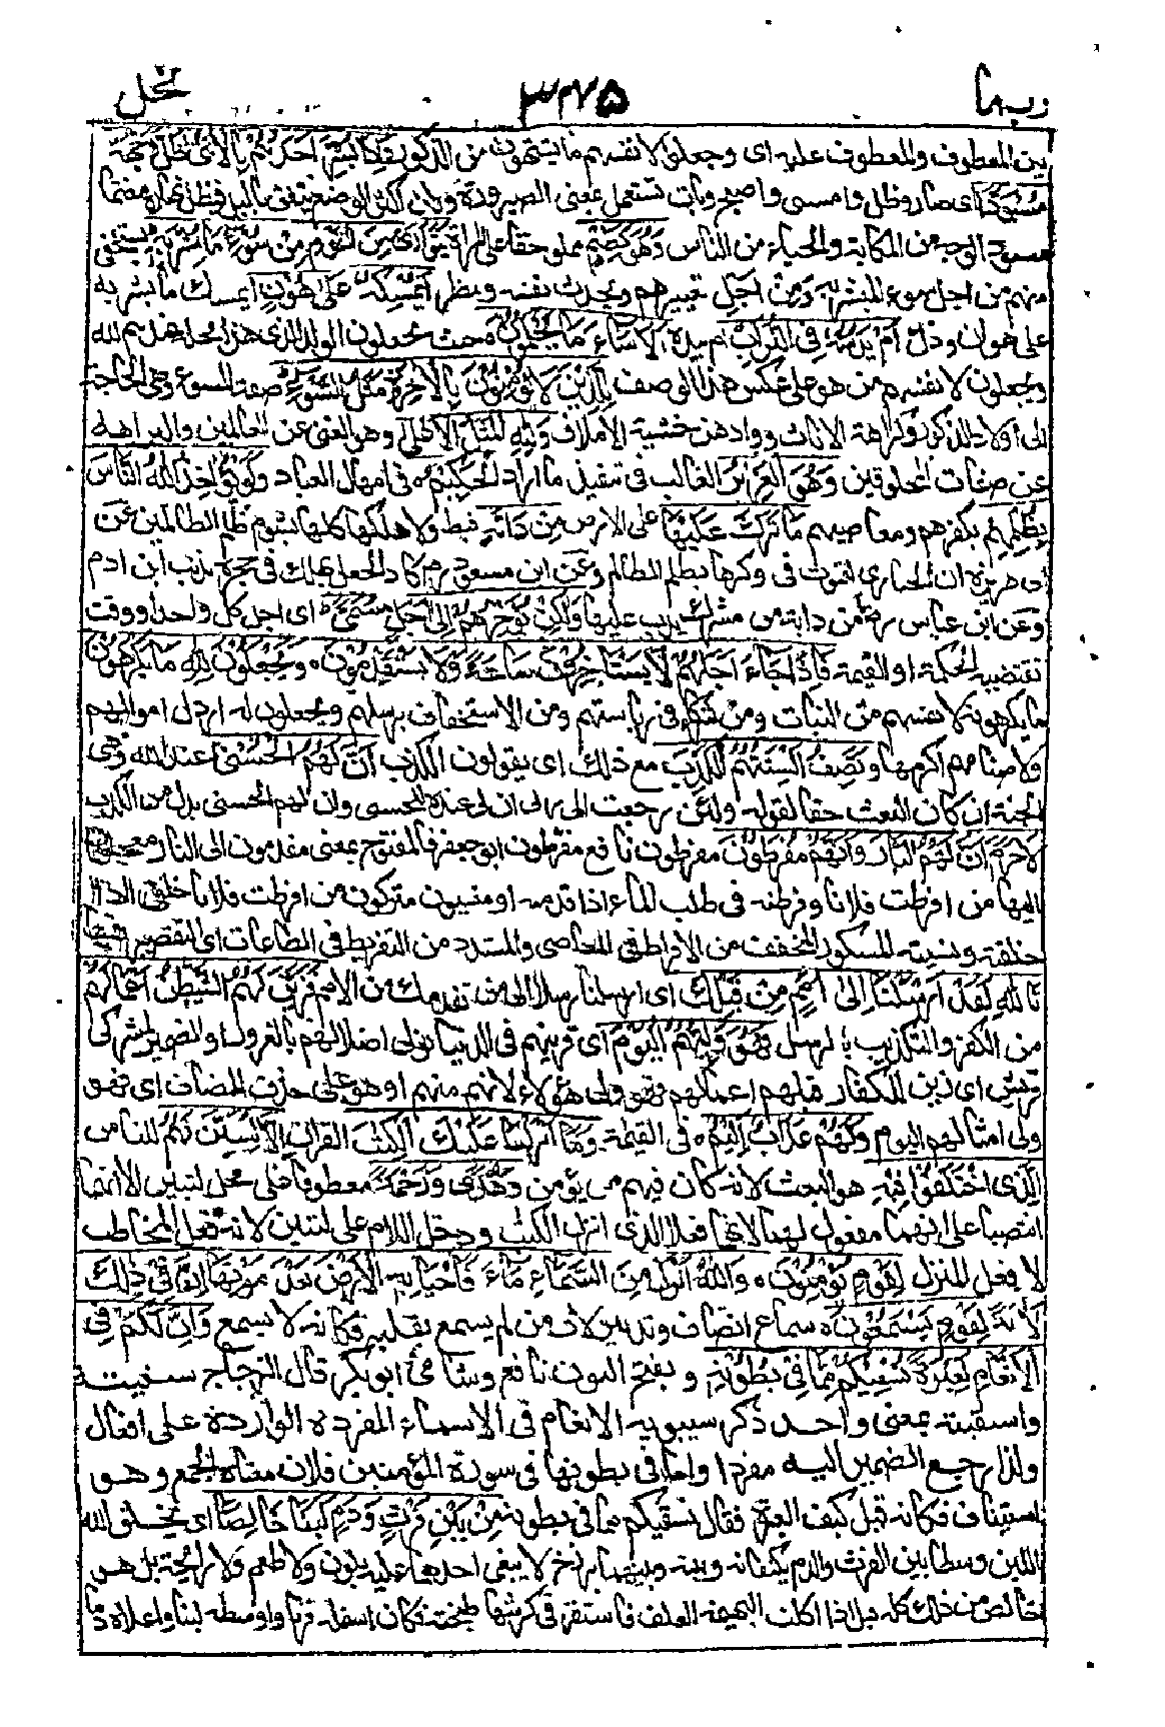 ربما ٣٧٥ نحل
بين المعطوف والمعطوف عليه اى وجعلوا لانفسهم ما يشتهون من الذكور وَإِذَا بُشِّرَ اَحَدُهُمْ بِالْأُنْثٰى ظَلَّ وَجْهُهُ
مُسْوَدًّا اى صار وظل وامسى واصبح وبات تستعمل بمعنى الصيرورة ولان اكثر الوضع يتفق بالليل فيظل نهاره مغتما
مسود الوجه من الكآبة والحياء من الناس وَهُوَ كَظِيْمٌ مملو حنقا على المراة يَتَوَارٰى مِنَ الْقَوْمِ مِنْ سُوْءِ مَا بُشِّرَ بِهٖ يستخفى
منهم من اجل سوء المبشر به ومن اجل تعييرهم ويحدث نفسه وينظر اَيُمْسِكُهٗ عَلٰى هُوْنٍ ايمسك ما بشر به
على هوان وذل اَمْ يَدُسُّهٗ فِى التُّرَابِ ام يئده اَلَا سَاءَ مَا يَحْكُمُوْنَ حيث يجعلون الولد الذى هذا محله عندهم لله
ويجعلون لانفسهم من هو على عكس هذا الوصف لِلَّذِيْنَ لَا يُؤْمِنُوْنَ بِالْاٰخِرَةِ مَثَلُ السَّوْءِ صفة السوء وهى الحاجة
الى الاولاد الذكور وكراهة الاناث ووادهن خشية الاملاق وَلِلّٰهِ الْمَثَلُ الْاَعْلٰى وهو الغنى عن العالمين والنزاهة
عن صفات المخلوقين وَهُوَ الْعَزِيْزُ الغالب فى تنفيذ ما اراد الْحَكِيْمُ فى امهال العباد وَلَوْ يُؤَاخِذُ اللّٰهُ النَّاسَ
بِظُلْمِهِمْ بكفرهم ومعاصيهم مَا تَرَكَ عَلَيْهَا على الارض مِنْ دَابَّةٍ قط ولاهلكها كلها بشوم ظلم الظالمين عن
ابى هريرة ان الحبارى لتموت فى وكرها بظلم الظالم وعن ابن مسعود رض كاد الجعل يهلك فى جحره بذنب ابن ادم
وعن ابن عباس رض من دابة من مشرك يدب عليها وَلٰكِنْ يُؤَخِّرُهُمْ اِلٰى اَجَلٍ مُسَمًّى اى اجل كل واحد او وقت
تقتضيه الحكمة او القيمة فَاِذَا جَاءَ اَجَلُهُمْ لَا يَسْتَاْخِرُوْنَ سَاعَةً وَلَا يَسْتَقْدِمُوْنَ وَيَجْعَلُوْنَ لِلّٰهِ مَا يَكْرَهُوْنَ
ما يكرهونه لانفسهم من البنات ومن شركاء فى رياستهم ومن الاستخفاف برسلهم ويجعلون له ارذل اموالهم
ولاصنامهم اكرمها وَتَصِفُ اَلْسِنَتُهُمُ الْكَذِبَ مع ذلك اى يقولون الكذب اَنَّ لَهُمُ الْحُسْنٰى عند الله وهى
الجنة ان كان البعث حقا لقوله ولئن رجعت الى ربى ان لى عنده للحسنى وان لهم الحسنى بدل من الكذب
لَاجَرَمَ اَنَّ لَهُمُ النَّارَ وَاَنَّهُمْ مُفْرَطُوْنَ مفرطون نافع مفرطون ابو جعفر فالمفتوح بمعنى مقدمون الى النار معجلون
اليها من افرطت فلانا وفرطته فى طلب الماء اذا قدمته او منسيون متروكون من افرطت فلانا خلفى اذا
خلفته ونسيته المكسور المخفف من الافراط فى المعاصى والمشدد من التفريط فى الطاعات اى التقصير فيها
تَاللّٰهِ لَقَدْ اَرْسَلْنَا اِلٰى اُمَمٍ مِنْ قَبْلِكَ اى ارسلنا رسلا الى من تقدمك من الامم فَزَيَّنَ لَهُمُ الشَّيْطٰنُ اَعْمَالَهُمْ
من الكفر والتكذيب بالرسل فَهُوَ وَلِيُّهُمُ الْيَوْمَ اى قرينهم فى الدنيا تولى اضلالهم بالغرور او الضمير لمشركى
قريش اى زين للكفار قبلهم اعمالهم فهو ولى هؤلاء لانهم منهم او هو على حذف المضاف اى فهو
ولى امثالهم اليوم وَلَهُمْ عَذَابٌ اَلِيْمٌ فى القيمة وَمَا اَنْزَلْنَا عَلَيْكَ الْكِتٰبَ القران اِلَّا لِتُبَيِّنَ لَهُمُ للناس
الَّذِى اخْتَلَفُوْا فِيْهِ هو البعث لانه كان فيهم من يؤمن وَهُدًى وَرَحْمَةً معطوفا على محل لتبين الا انهما
انتصبا على انهما مفعول لهما لانهما فعلا الذى انزل الكتب ودخل اللام على لتبين لانه فعل المخاطب
لا فعل المنزل لِقَوْمٍ يُؤْمِنُوْنَ وَاللّٰهُ اَنْزَلَ مِنَ السَّمَاءِ مَاءً فَاَحْيَا بِهِ الْاَرْضَ بَعْدَ مَوْتِهَا اِنَّ فِىْ ذٰلِكَ
لَاٰيَةً لِقَوْمٍ يَسْمَعُوْنَ سماع انصاف وتدبر لان من لم يسمع بقلبه فكانه لا يسمع وَاِنَّ لَكُمْ فِى
الْاَنْعَامِ لَعِبْرَةً نُسْقِيْكُمْ مِمَّا فِىْ بُطُوْنِهٖ وبفتح النون نافع وشامى ابو بكر قال الزجاج سقيته
واسقيته بمعنى واحد ذكر سيبويه الانعام فى الاسماء المفردة الواردة على افعال
ولذا رجع الضمير اليه مفردا واما فى بطونها فى سورة المؤمنين فلان معناه الجمع وهو
استيناف فكانه قيل كيف العبرة فقال نسقيكم مما فى بطونه مِنْ بَيْنِ فَرْثٍ وَدَمٍ لَبَنًا خَالِصًا اى يخلق الله
اللبن وسطا بين الفرث والدم يكتنفانه وبينه وبينهما برزخ لا يبغى احدهما عليه بلون ولا طعم ولا رائحة بل هو
خالص من ذلك كله قيل اذا اكلت البهيمة العلف فاستقر فى كرشها طبخته فكان اسفله فرثا واوسطه لبنا واعلاه دما